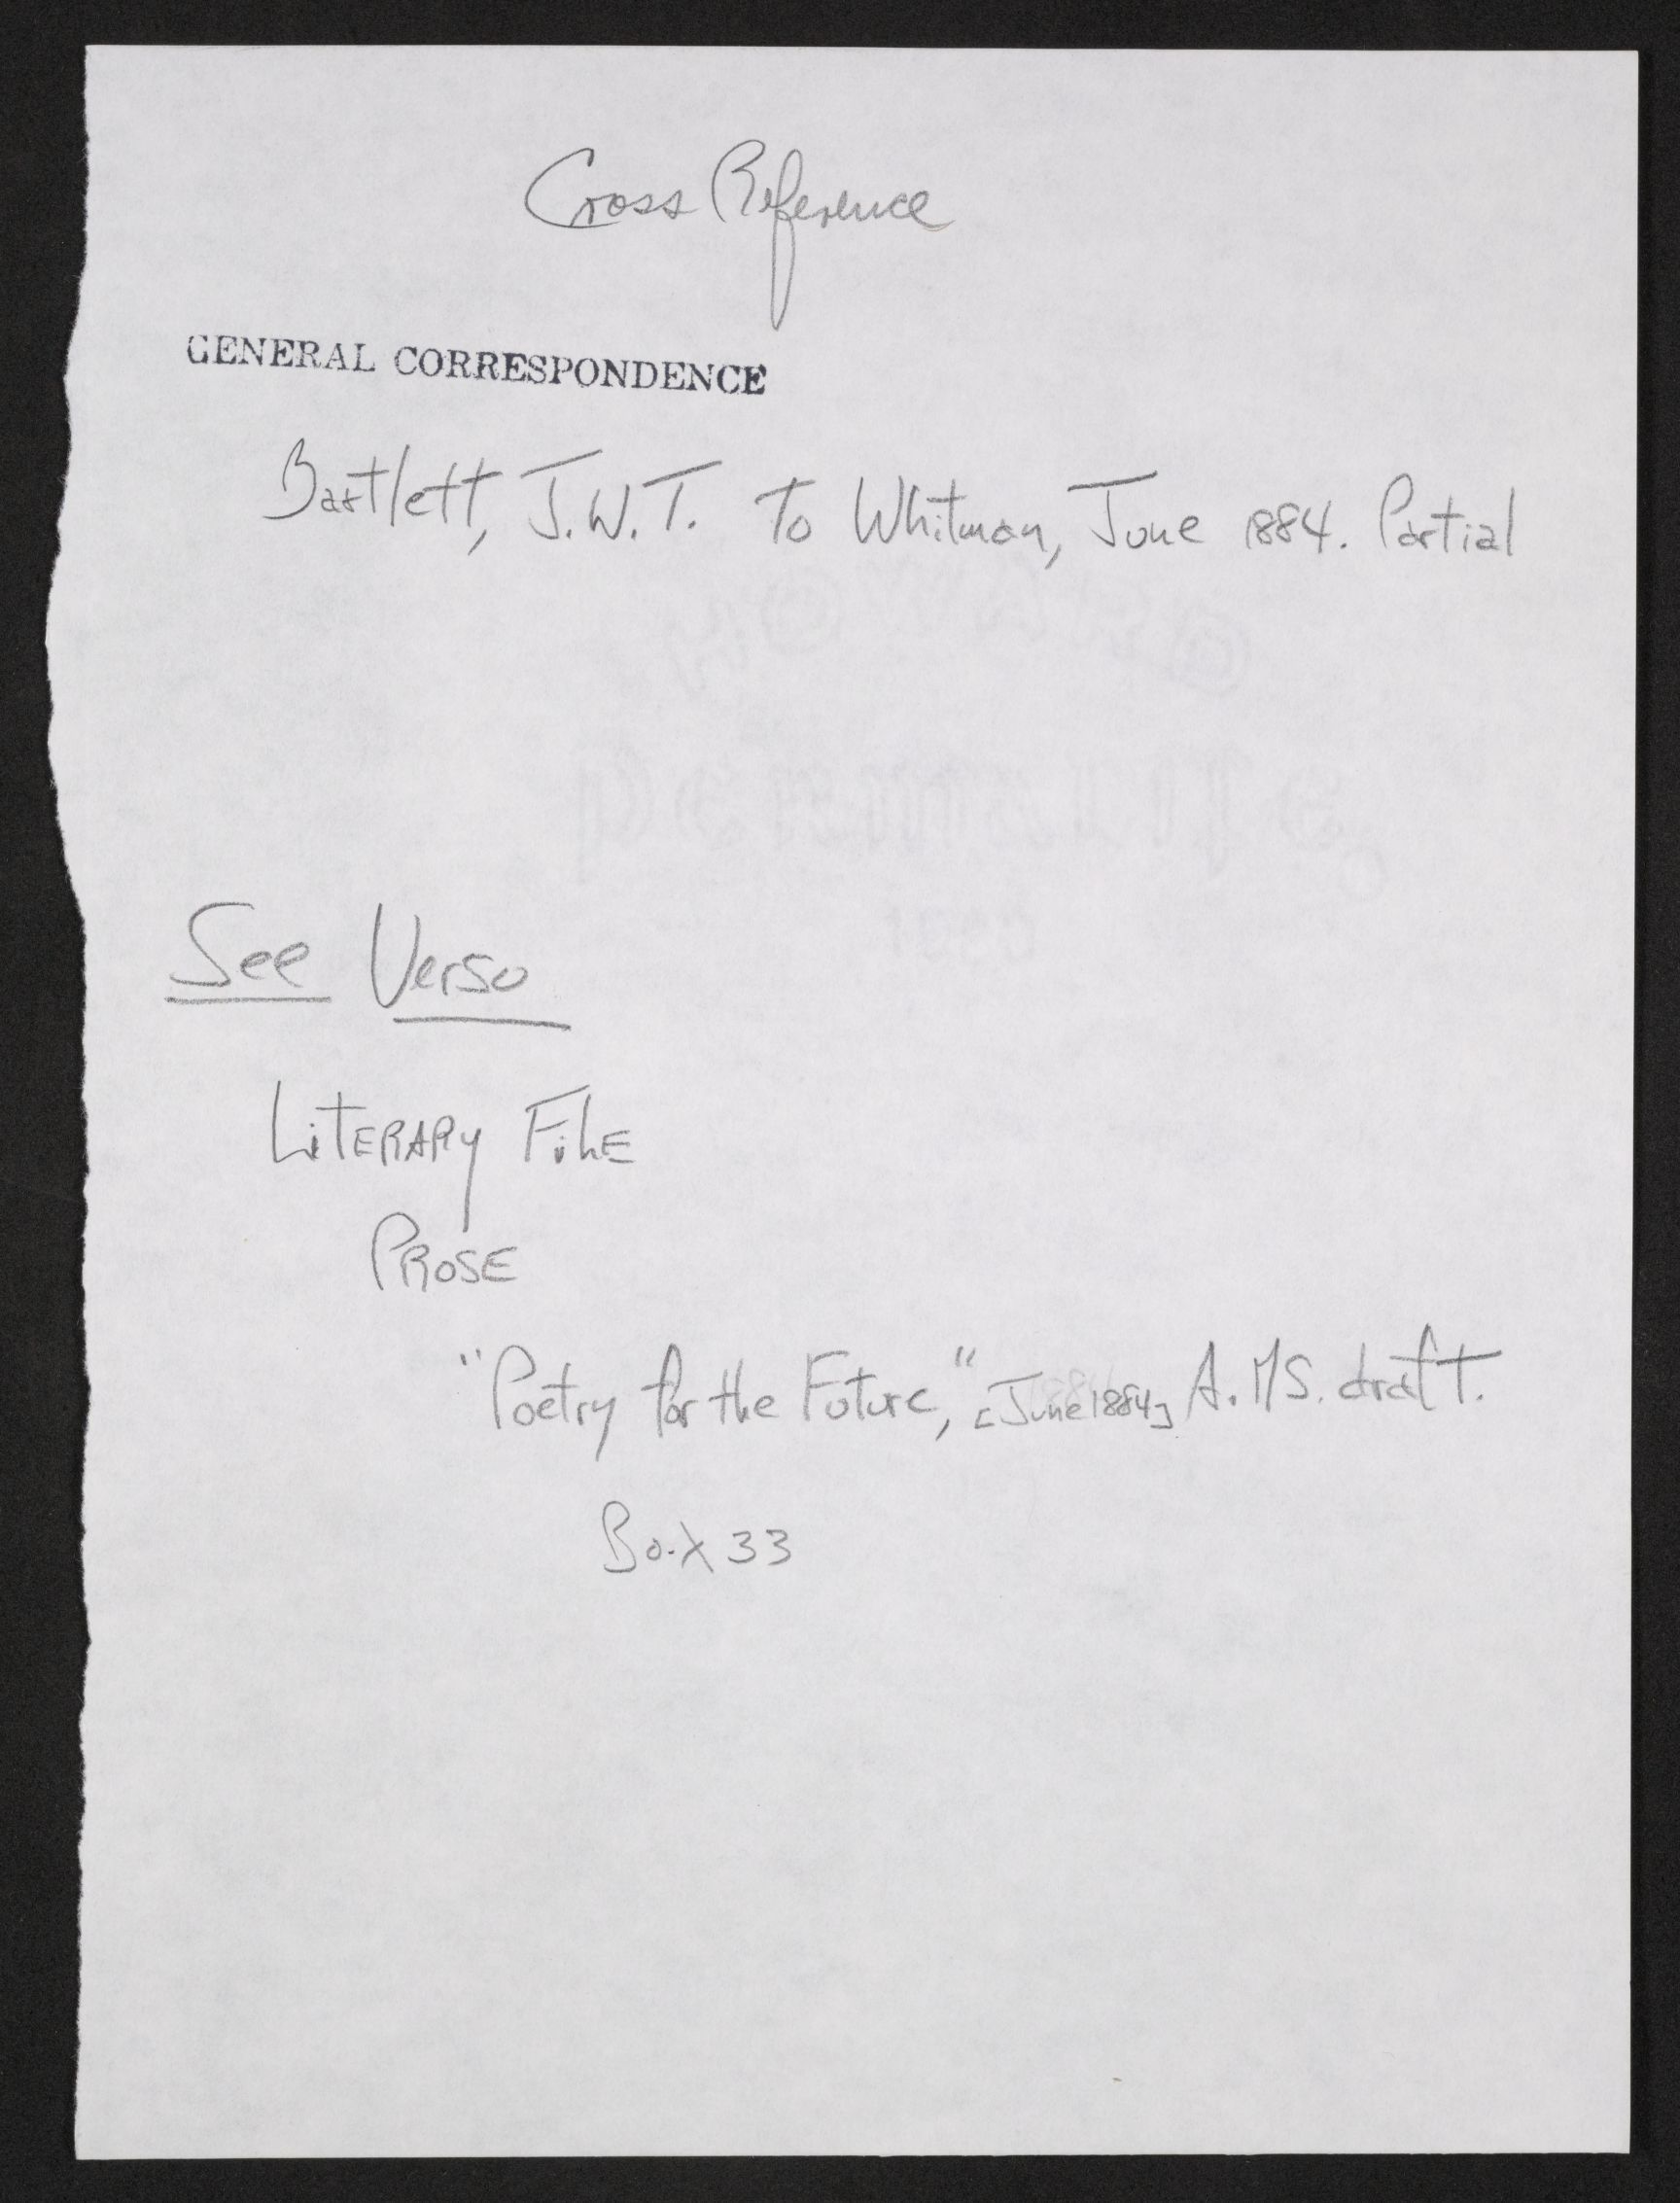 Cross Reference
GENERAL CORRESPONDENCE
Bartlett, J.W.T. To Whitman, June 1884. Partial
See Verso
LiTERARY FiLE
PROSE
"Poetry for the Future," [June 1884] A. MS. draft.
Box 33